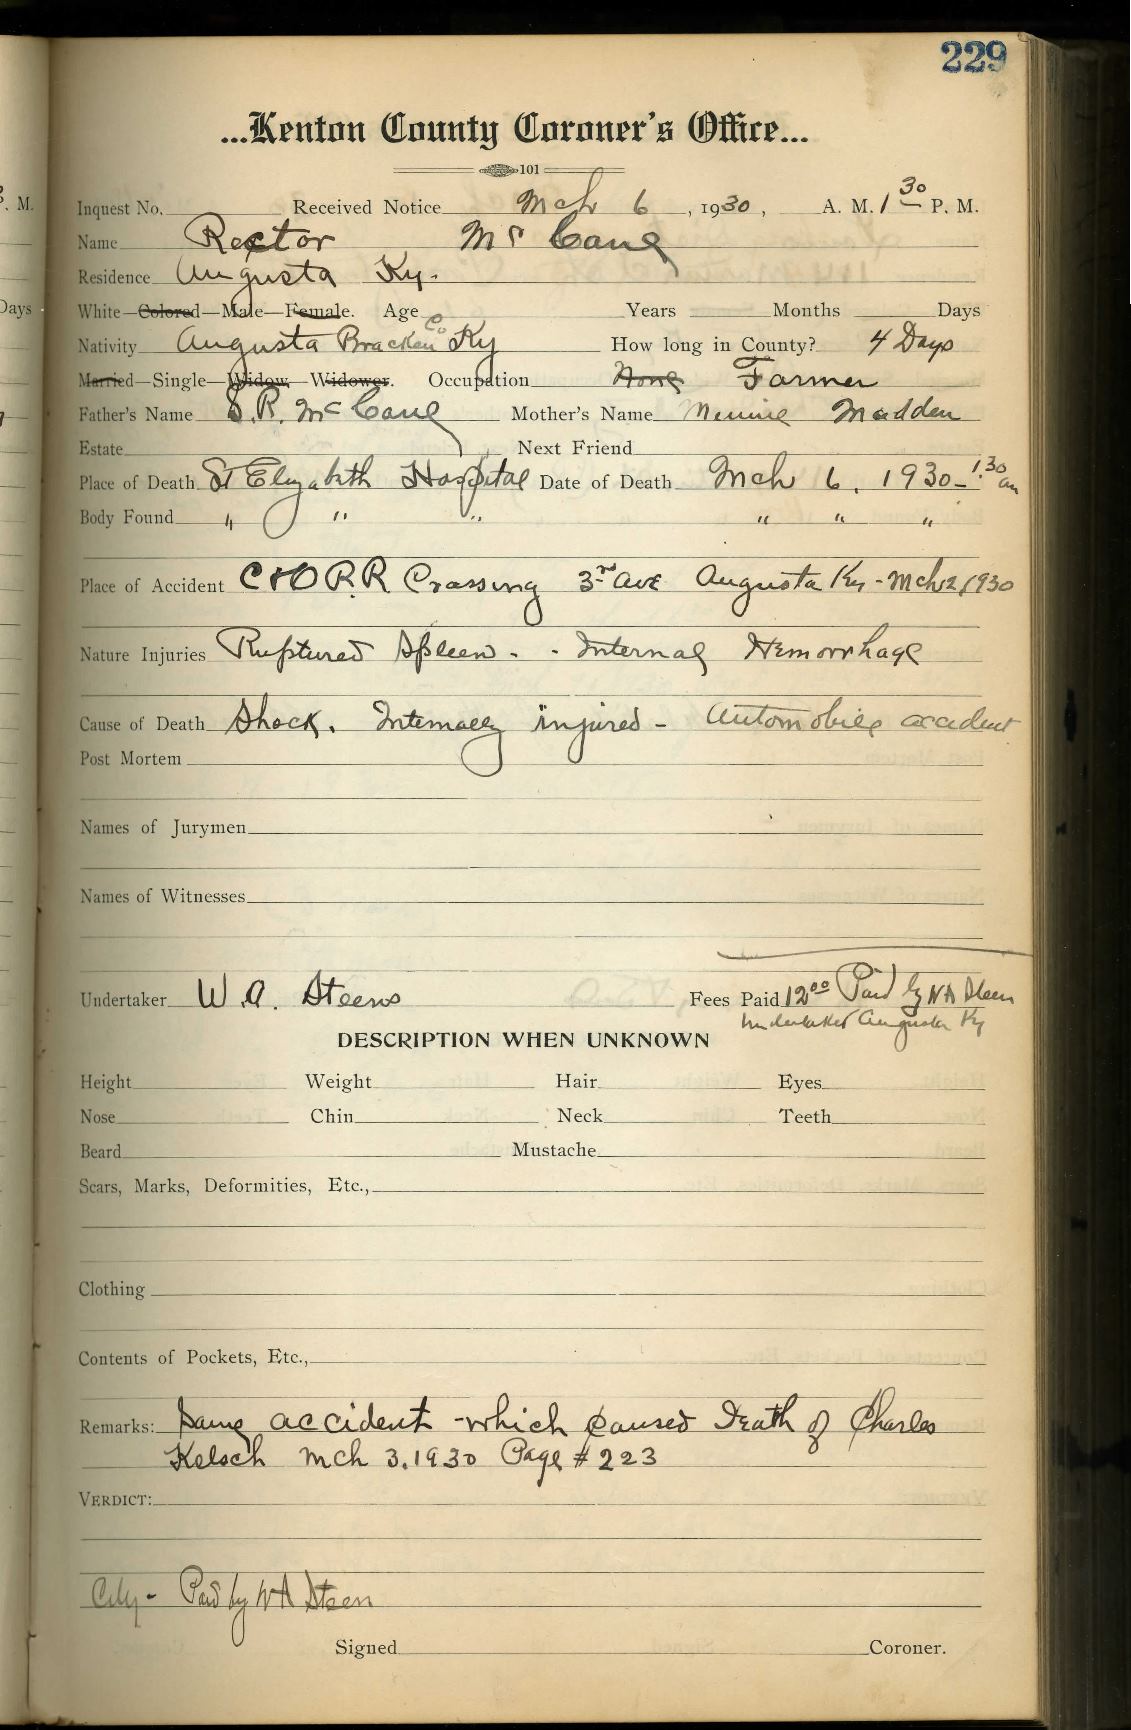 229
...Kenton County Coroner's Office...
101
Inquest No. Received Notice Mch 6, 1930, A. M. 1 30 P. M.
Name Rector McCane
Residence Augusta Ky.
White—Colored—Male—Female. Age Years Months Days
Nativity Augusta Bracken Co Ky How long in County? 4 Days
Married—Single—Widow—Widower. Occupation None Farmer
Father's Name S.R. McCane Mother's Name Madden
Estate Next Friend
Place of Death St Elizabeth Hospital Date of Death Mch 6, 1930 - 1:30 am
Body Found " " " " " "
Place of Accident C&O R.R Crossing 3rd Ave Augusta Ky - Mch 2, 1930
Nature Injuries Ruptured Spleen - - Internal Hemorrhage
Cause of Death Shock. Internally injured - Automobile accident
Post Mortem
Names of Jurymen
Names of Witnesses
Undertaker W.A. Steens Fees Paid 12 00 Paid by WA Steen
Undertaker Augusta Ky
DESCRIPTION WHEN UNKNOWN
Height Weight Hair Eyes
Nose Chin Neck Teeth
Beard Mustache
Scars, Marks, Deformities, Etc.,
Clothing
Contents of Pockets, Etc.,
Remarks: Same accident - which caused Death of Charles
Kelsch Mch 3, 1930 Page # 223
VERDICT:
City - Paid by WA Steen
Signed Coroner.